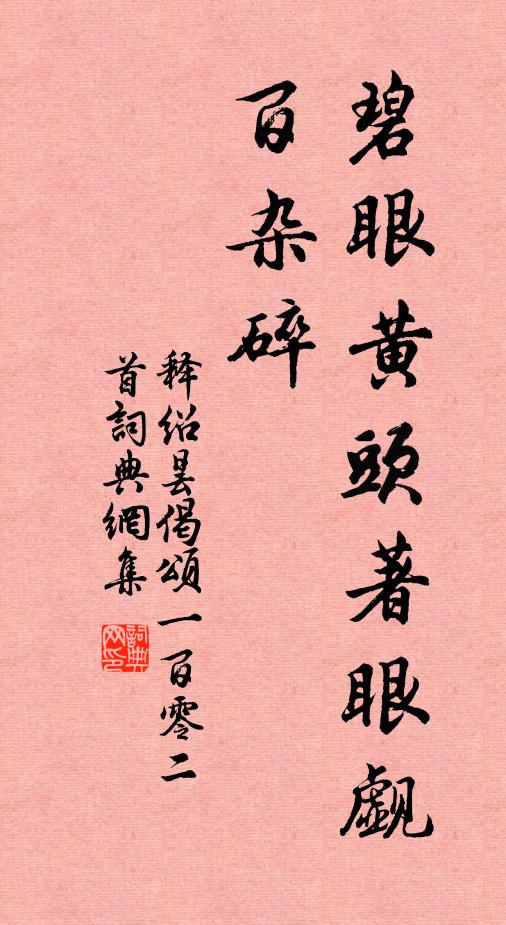 碧眼黄頭著眼觑
百杂碎
释绍昙偈頌一百零二
首詞典網集
詞典网印